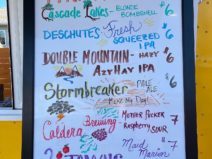 Cascade Lakes - Blonde
Bombshell $6
Deschutes Fresh
Squeezed $6
IPA
Double Mountain - Hazy
AzyHazy IPA $6
Stormbreaker Pale
Ale $6
Make My Day!
Caldera
Brewing
Mother Pucker 7
Raspberry Sour
Maid Marion 7